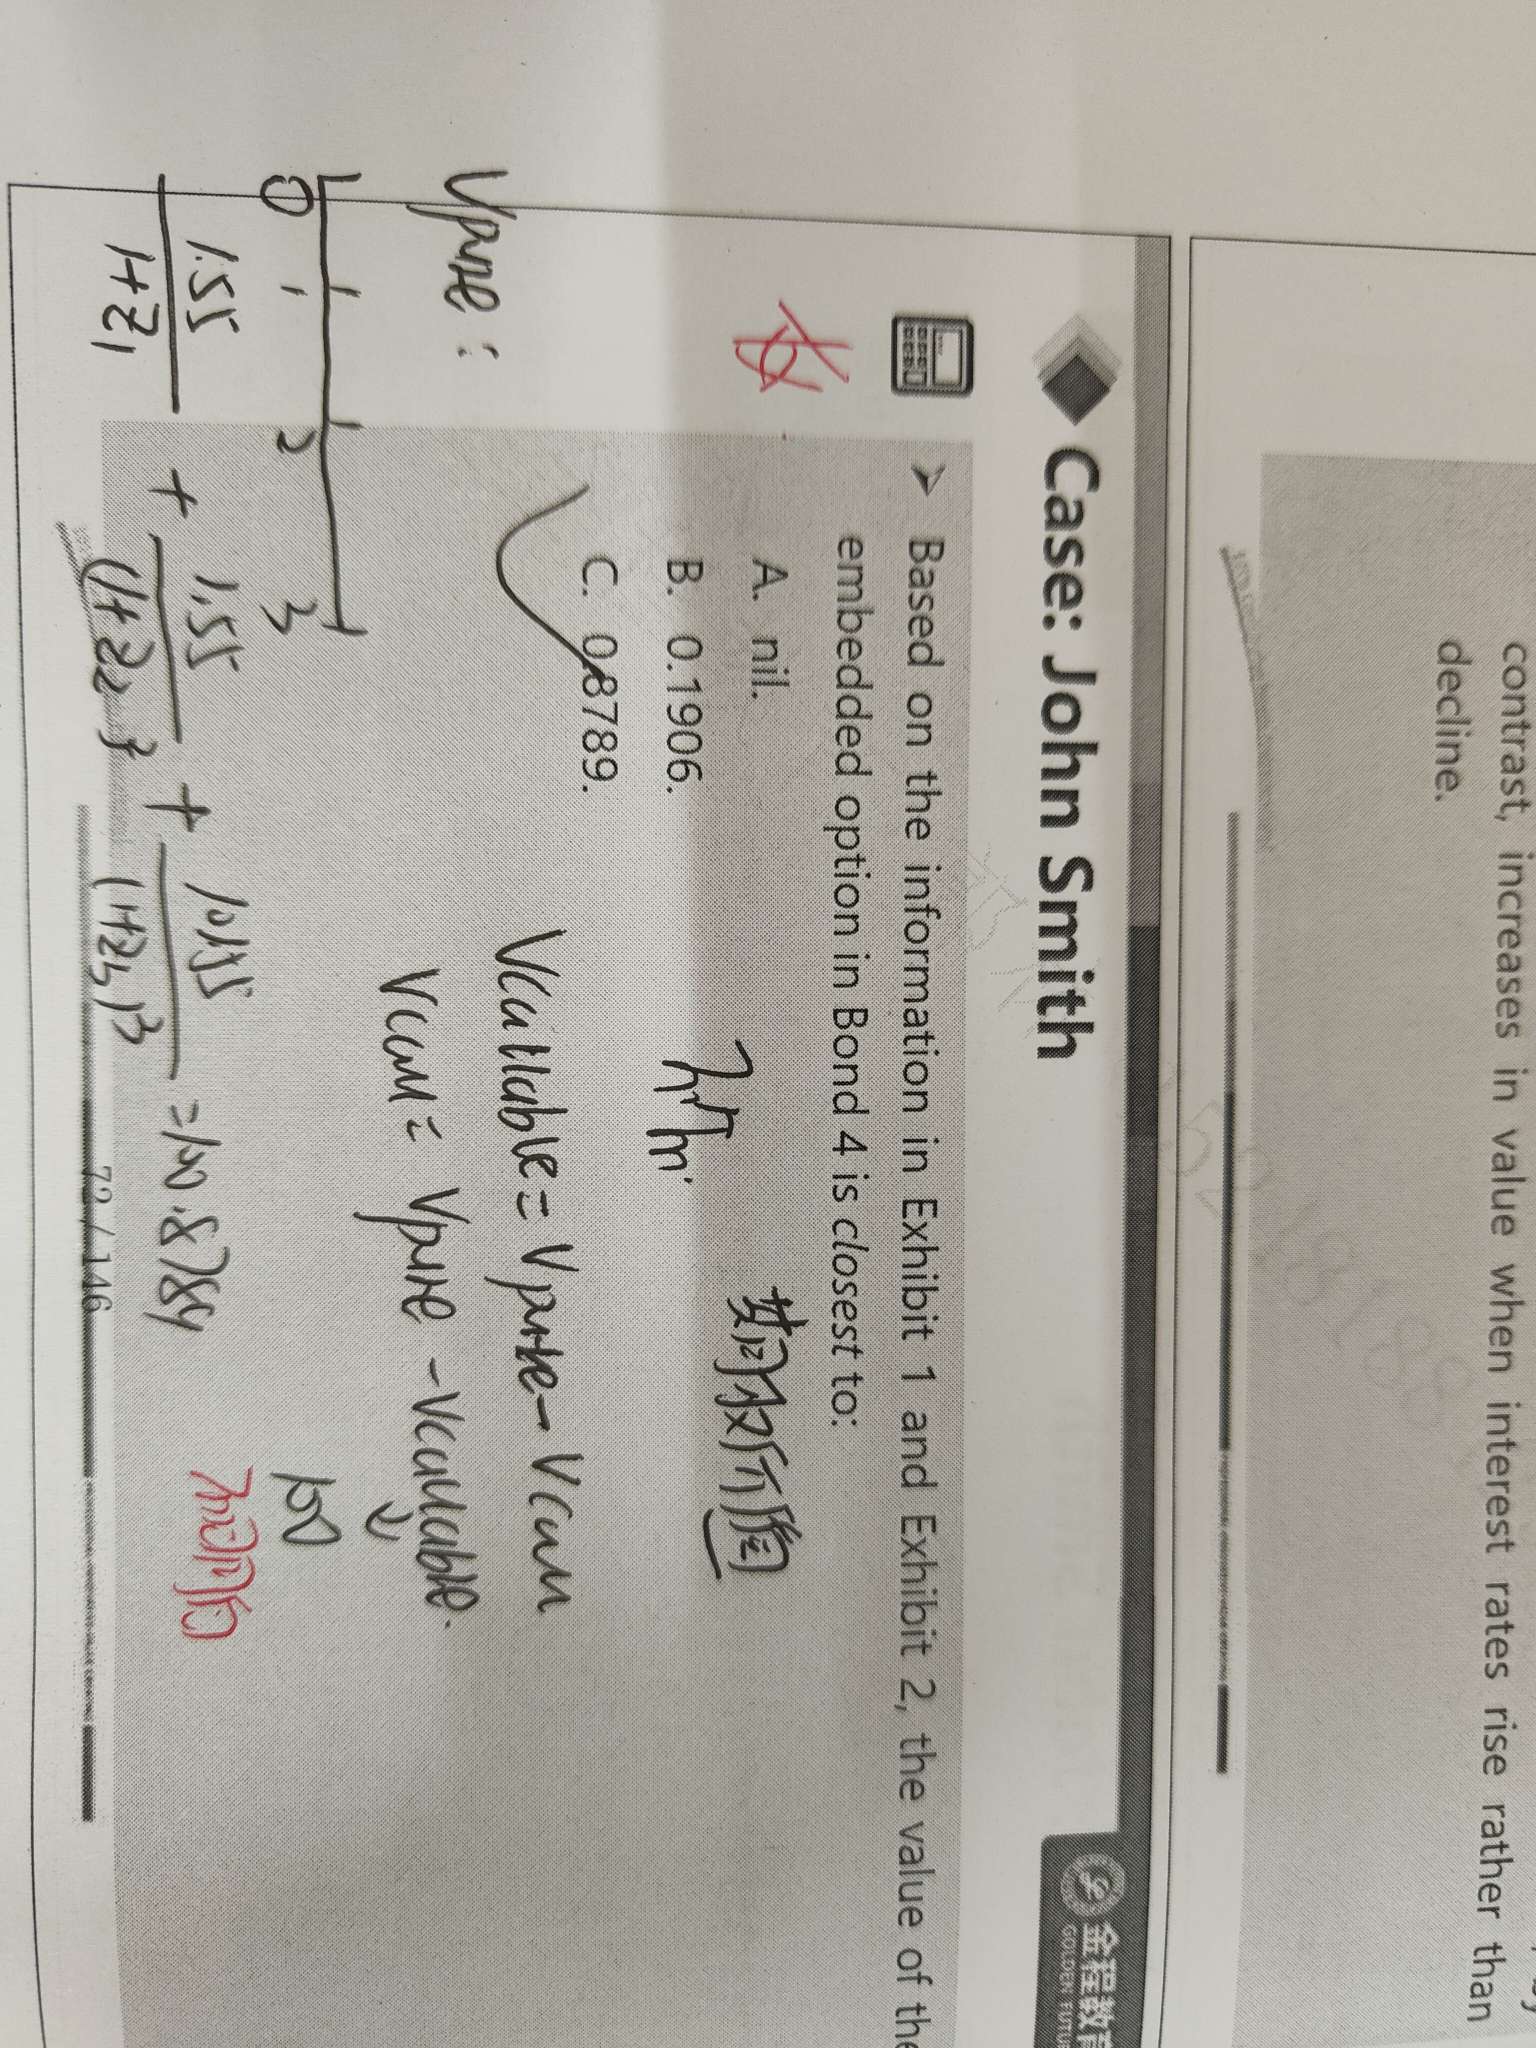 contrast, increases in value when interest rates rise rather than
decline.
Case: John Smith
金程教育
GOLDEN FUTURE
➤ Based on the information in Exhibit 1 and Exhibit 2, the value of the
embedded option in Bond 4 is closest to:
A. nil.
B. 0.1906.
C. 0.8789.
Vcallable = Vpure - Vcall
Vpure:
Vcall = Vpure - Vcallable.
100
0 1 2 3
1.55/1+Z1 + 1.55/(1+Z2)² + 101.55/(1+Z3)³ = 100.8789
72 / 146